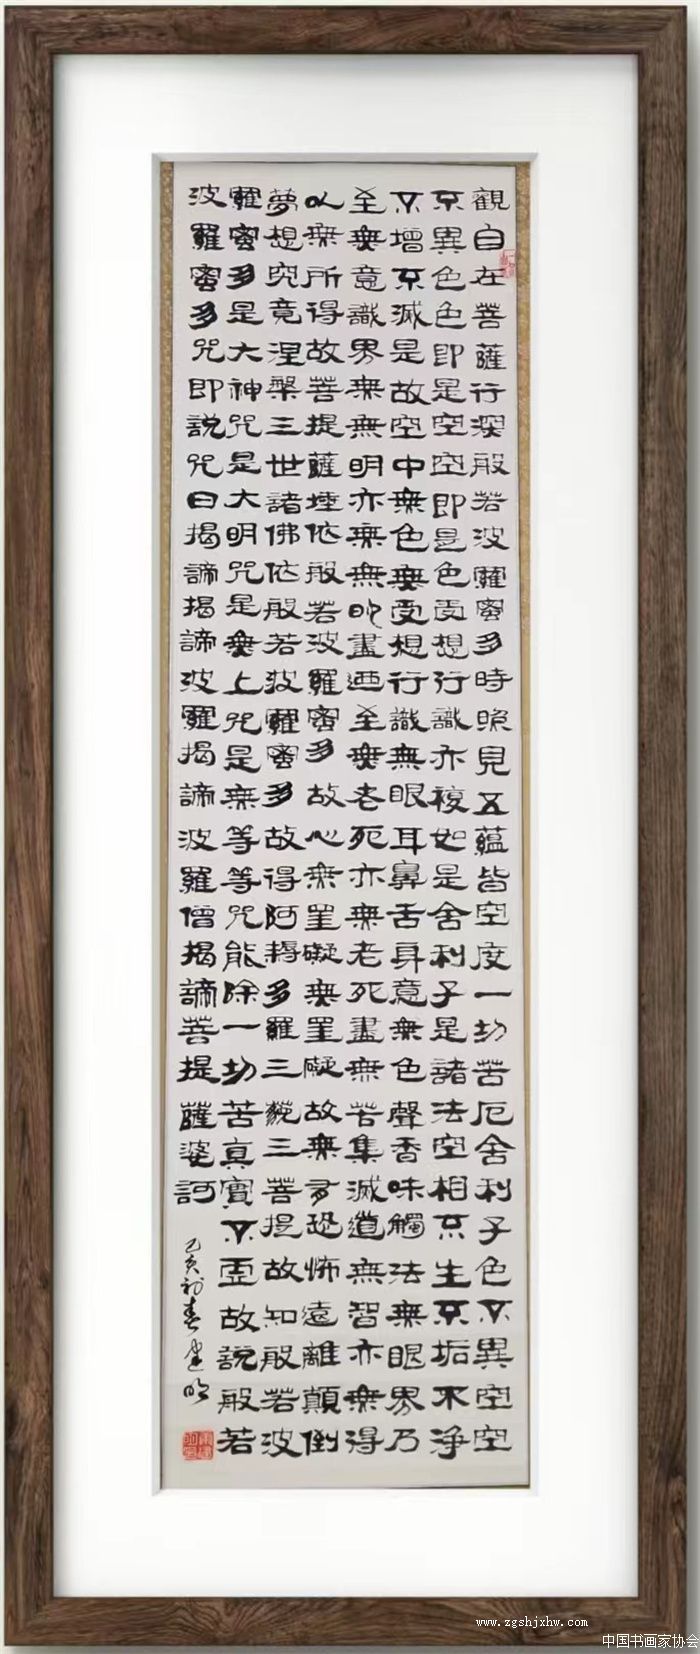 觀自在菩薩行深般若波羅蜜多時照見五蘊皆空度一切苦厄舍利子色不異空空
不異色色即是空空即是色受想行識亦複如是舍利子是諸法空相不生不垢不淨
不增不減是故空中無色無受想行識無眼耳鼻舌身意無色聲香味觸法無眼界乃
至無意識界無無明亦無無明盡迺至無老死亦無老死盡無苦集滅道無智亦無得
以無所得故菩提薩埵依般若波羅蜜多故心無罣礙無罣礙故無有恐怖遠離顛倒
夢想究竟涅槃三世諸佛依般若波羅蜜多故得阿耨多羅三藐三菩提故知般若波
羅蜜多是大神咒是大明咒是無上咒是無等等咒能除一切苦真實不虛故說般若
波羅蜜多咒即說咒曰揭諦揭諦波羅揭諦波羅僧揭諦菩提薩婆訶
己亥初春建明
www.zgshjxhw.com
中国书画家协会